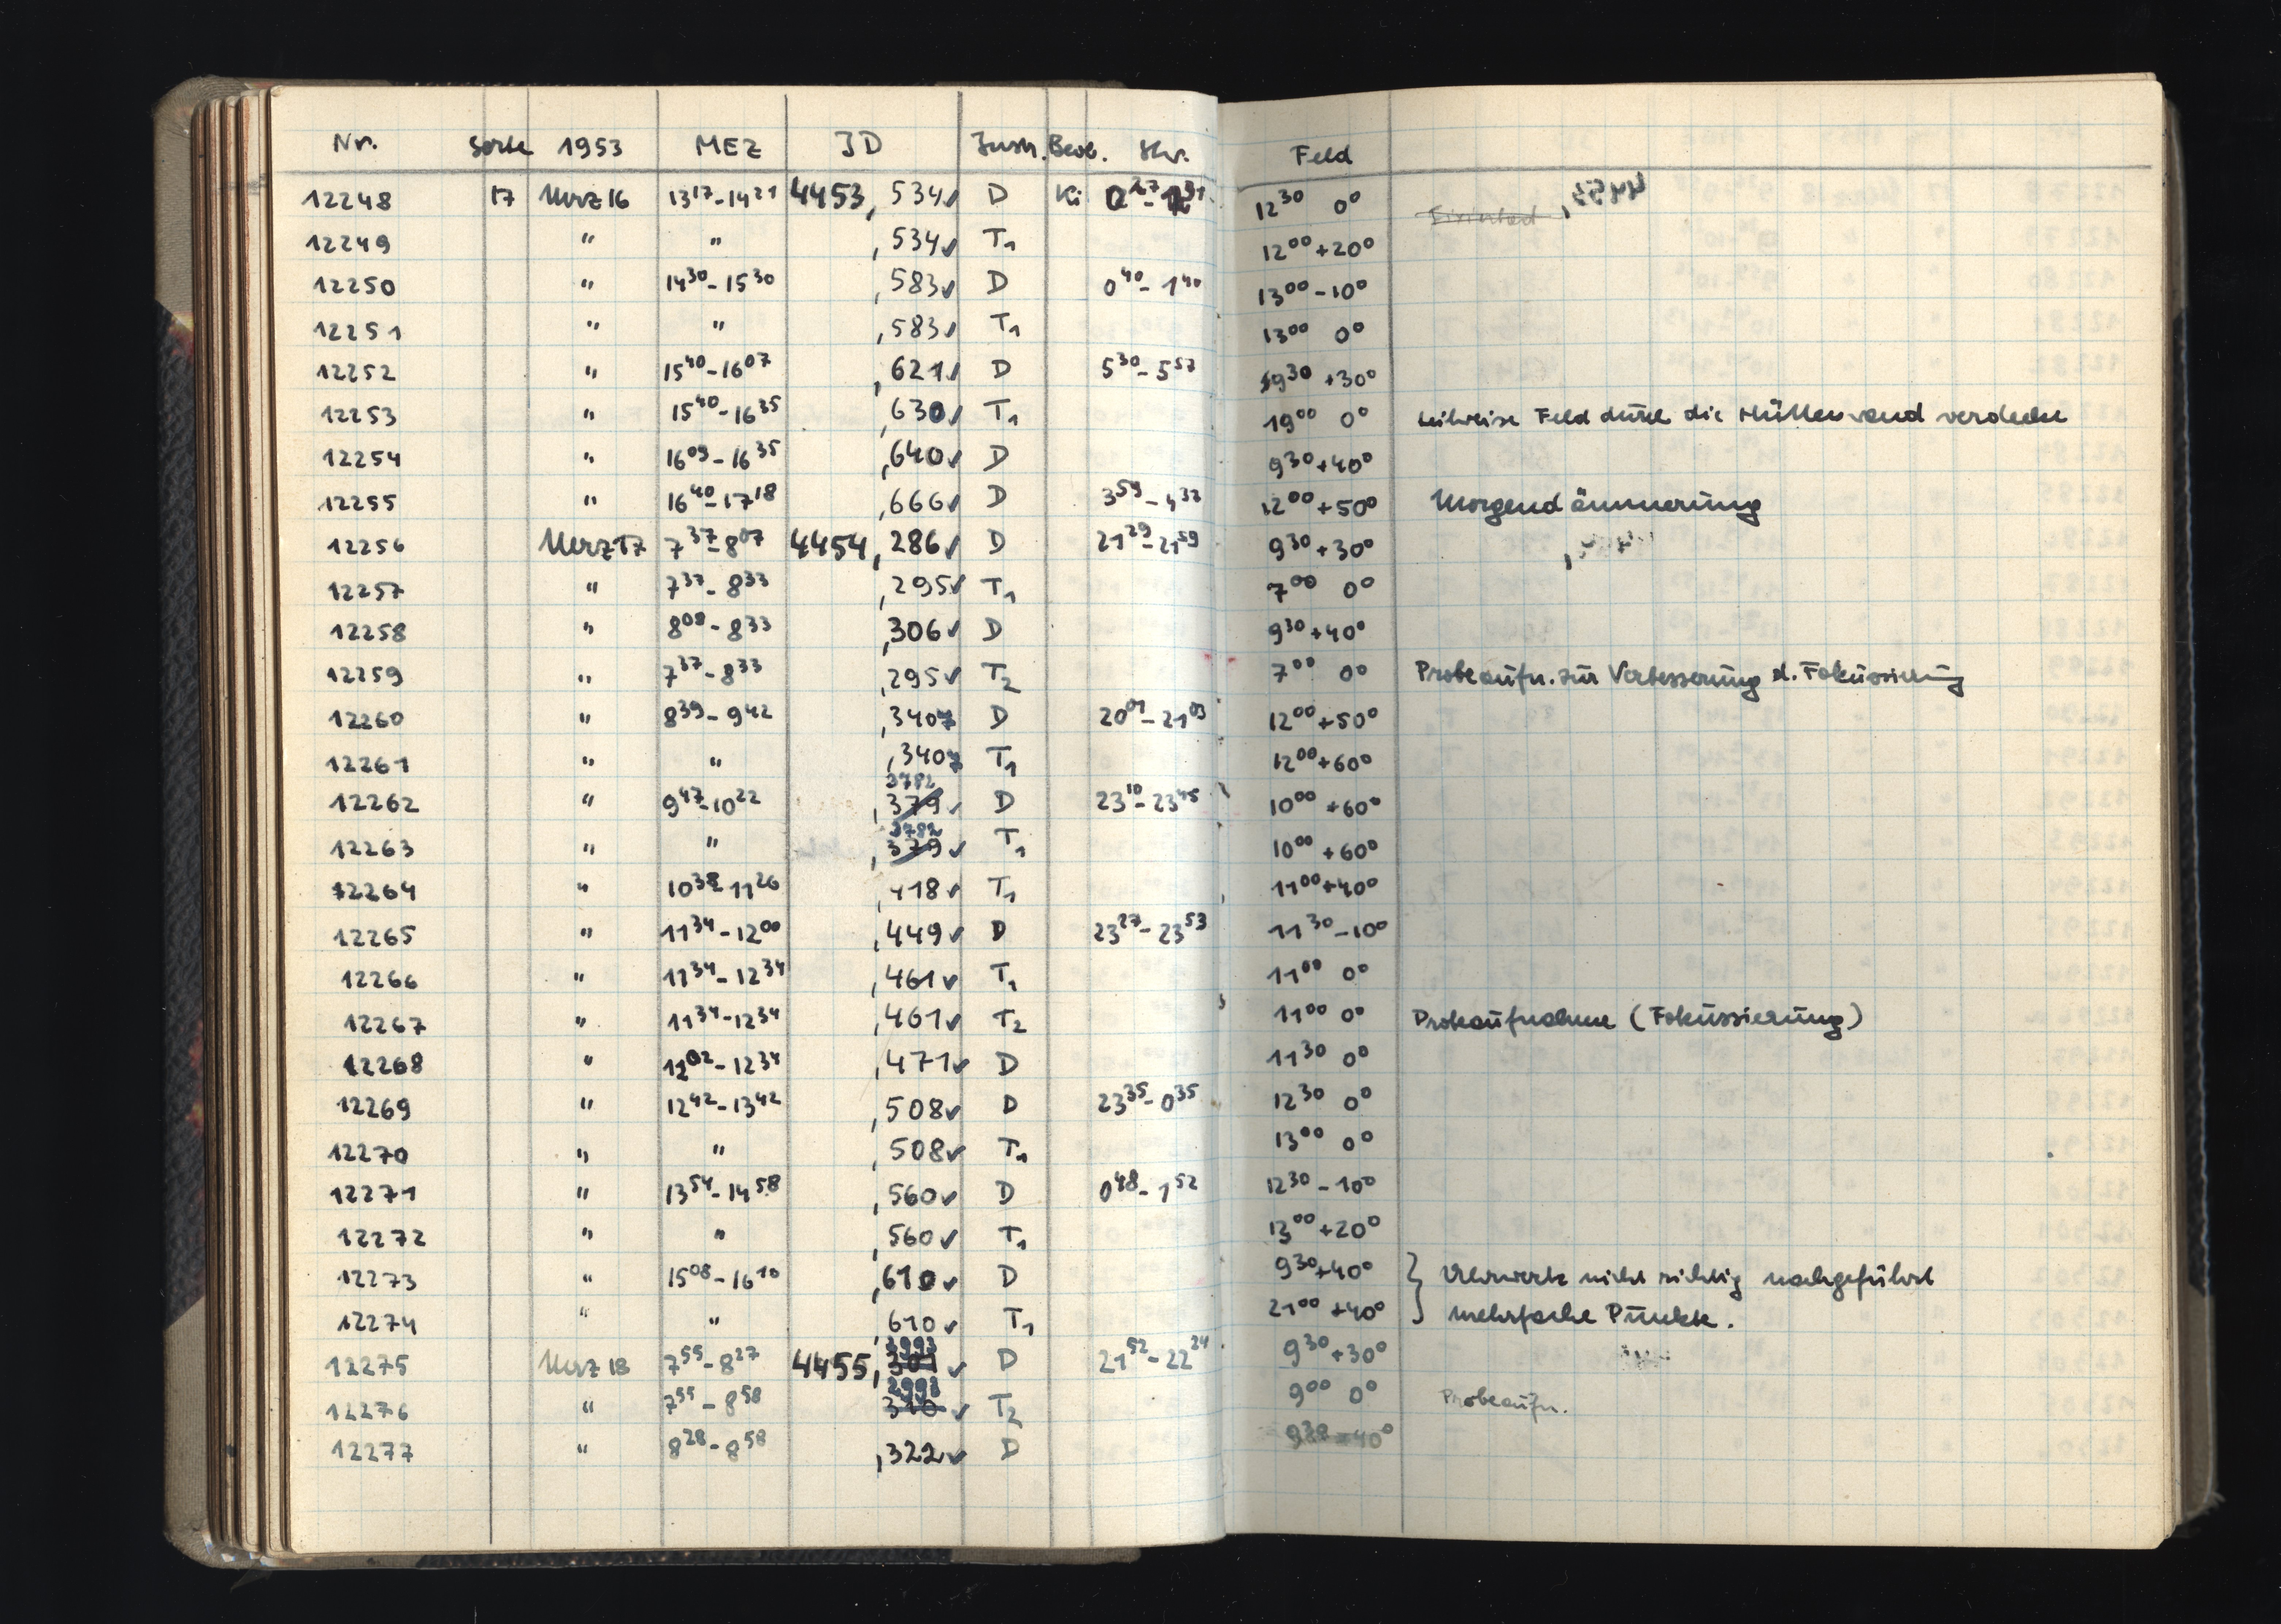 Nr. Sorte 1953 MEZ JD Instr. Beob. Stw. Feld
12248 17 März 16 13¹⁷-14²¹ 4453,534✓ D Ki 12³⁰ 0°
12249 " " ,534✓ T₁ 12⁰⁰ +20°
12250 " 14³⁰-15³⁰ ,583✓ D 0⁴⁰-1⁴⁰ 13⁰⁰ -10°
12251 " " ,583✓ T₁ 13⁰⁰ 0°
12252 " 15⁴⁰-16⁰⁷ ,621✓ D 5³⁰-5⁵⁷ 9³⁰ +30°
12253 " 15⁴⁰-16³⁵ ,630✓ T₁ 19⁰⁰ 0° teilweise Feld durch die Hüttenwand verdeckt
12254 " 16⁰⁹-16³⁵ ,640✓ D 9³⁰ +40°
12255 " 16⁴⁰-17¹⁸ ,666✓ D 3⁵⁹-4³⁷ 12⁰⁰ +50° Morgendämmerung
12256 März 17 7³⁷-8⁰⁷ 4454,286✓ D 21²⁹-21⁵⁹ 9³⁰ +30°
12257 " 7³⁷-8³³ ,295✓ T₁ 7⁰⁰ 0°
12258 " 8⁰⁸-8³³ ,306✓ D 9³⁰ +40°
12259 " 7³⁷-8³³ ,295✓ T₂ 7⁰⁰ 0° Probeaufn. zur Verbesserung d. Fokussierung
12260 " 8³⁹-9⁴² ,3407 D 20⁰¹-21⁰³ 12⁰⁰ +50°
12261 " " ,3407 T₁ 12⁰⁰ +60°
3782
12262 " 9⁴⁷-10²² ,379✓ D 23¹⁰-23⁴⁵ 10⁰⁰ +60°
3782
12263 " " ,379✓ T₁ 10⁰⁰ +60°
12264 " 10³⁸-11²⁶ ,418✓ T₁ 11⁰⁰ +40°
12265 " 11³⁴-12⁰⁰ ,449✓ D 23²⁷-23⁵³ 11³⁰ -10°
12266 " 11³⁴-12³⁴ ,461✓ T₁ 11⁰⁰ 0°
12267 " 11³⁴-12³⁴ ,461✓ T₂ 11⁰⁰ 0° Probeaufnahme (Fokussierung)
12268 " 12⁰²-12³⁴ ,471✓ D 11³⁰ 0°
12269 " 12⁴²-13⁴² ,508✓ D 23³⁵-0³⁵ 12³⁰ 0°
12270 " " ,508✓ T₁ 13⁰⁰ 0°
12271 " 13⁵⁴-14⁵⁸ ,560✓ D 0⁴⁸-1⁵² 12³⁰ -10°
12272 " " ,560✓ T₁ 13⁰⁰ +20°
12273 " 15⁰⁸-16¹⁰ ,610✓ D 9³⁰ +40° } Uhrwerk nicht richtig nachgeführt
12274 " " ,610✓ T₁ 21⁰⁰ +40° mehrfache Punkte.
2993
12275 März 18 7⁵⁵-8²⁷ 4455,301✓ D 21⁵²-22²⁴ 9³⁰ +30°
2998
12276 " 7⁵⁵-8⁵⁸ 310✓ T₂ 9⁰⁰ 0° Probeaufn.
12277 " 8²⁸-8⁵⁸ ,322✓ D 9³⁰ +40°